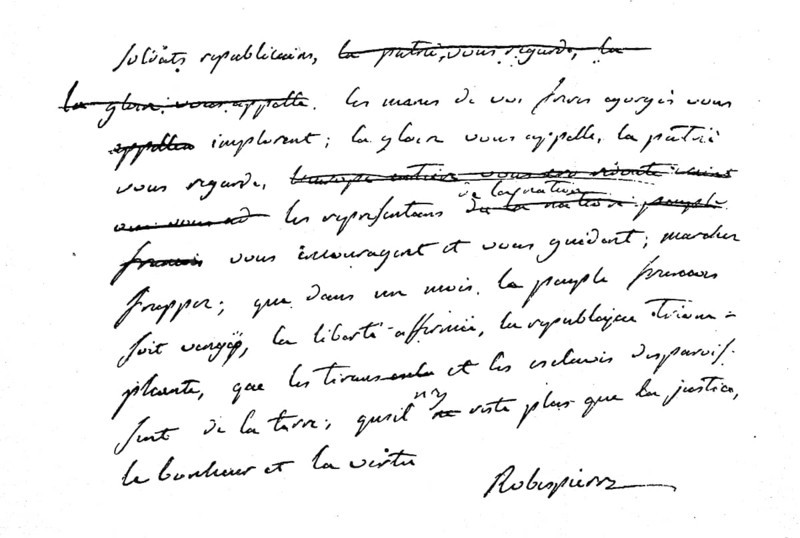 soldats republicains, la patrie vous regarde, la
la gloire vous appelle. les manes de vos freres egorgés vous
appellen implorent; la gloire vous appelle, la patrie
vous regarde, l'europe entiere vous
de la nation
les representans de la nation peuple
francais vous encouragent et vous guident; marchez
frappez; que dans un mois le peuple francais
soit vengé, la liberté affermie, la republique triom=
phante, que les tirans et les esclaves disparois-
sent de la terre; qu'il n'y reste plus que la justice,
le bonheur et la vertu
Robespierre